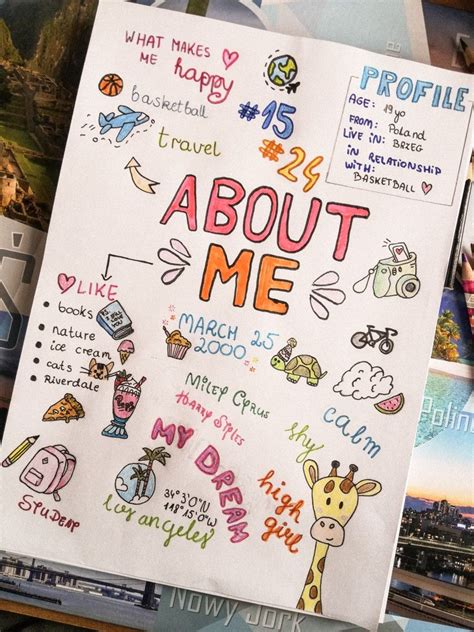 WHAT MAKES
ME happy
basketball
travel
#15
#24
PROFILE
AGE: 19 yo
FROM: Poland
LIVE IN: BRZEG
IN RELATIONSHIP
WITH:
BASKETBALL
ABOUT
ME
LIKE
books
nature
ice cream
cats
Riverdale
MARCH 25
2000
Miley Cyrus
Harry Styles
shy
calm
MY DREAM
high
girl
STUDENT
34°3'0"N
118°15'0"W
los angeles
NOWY JORK